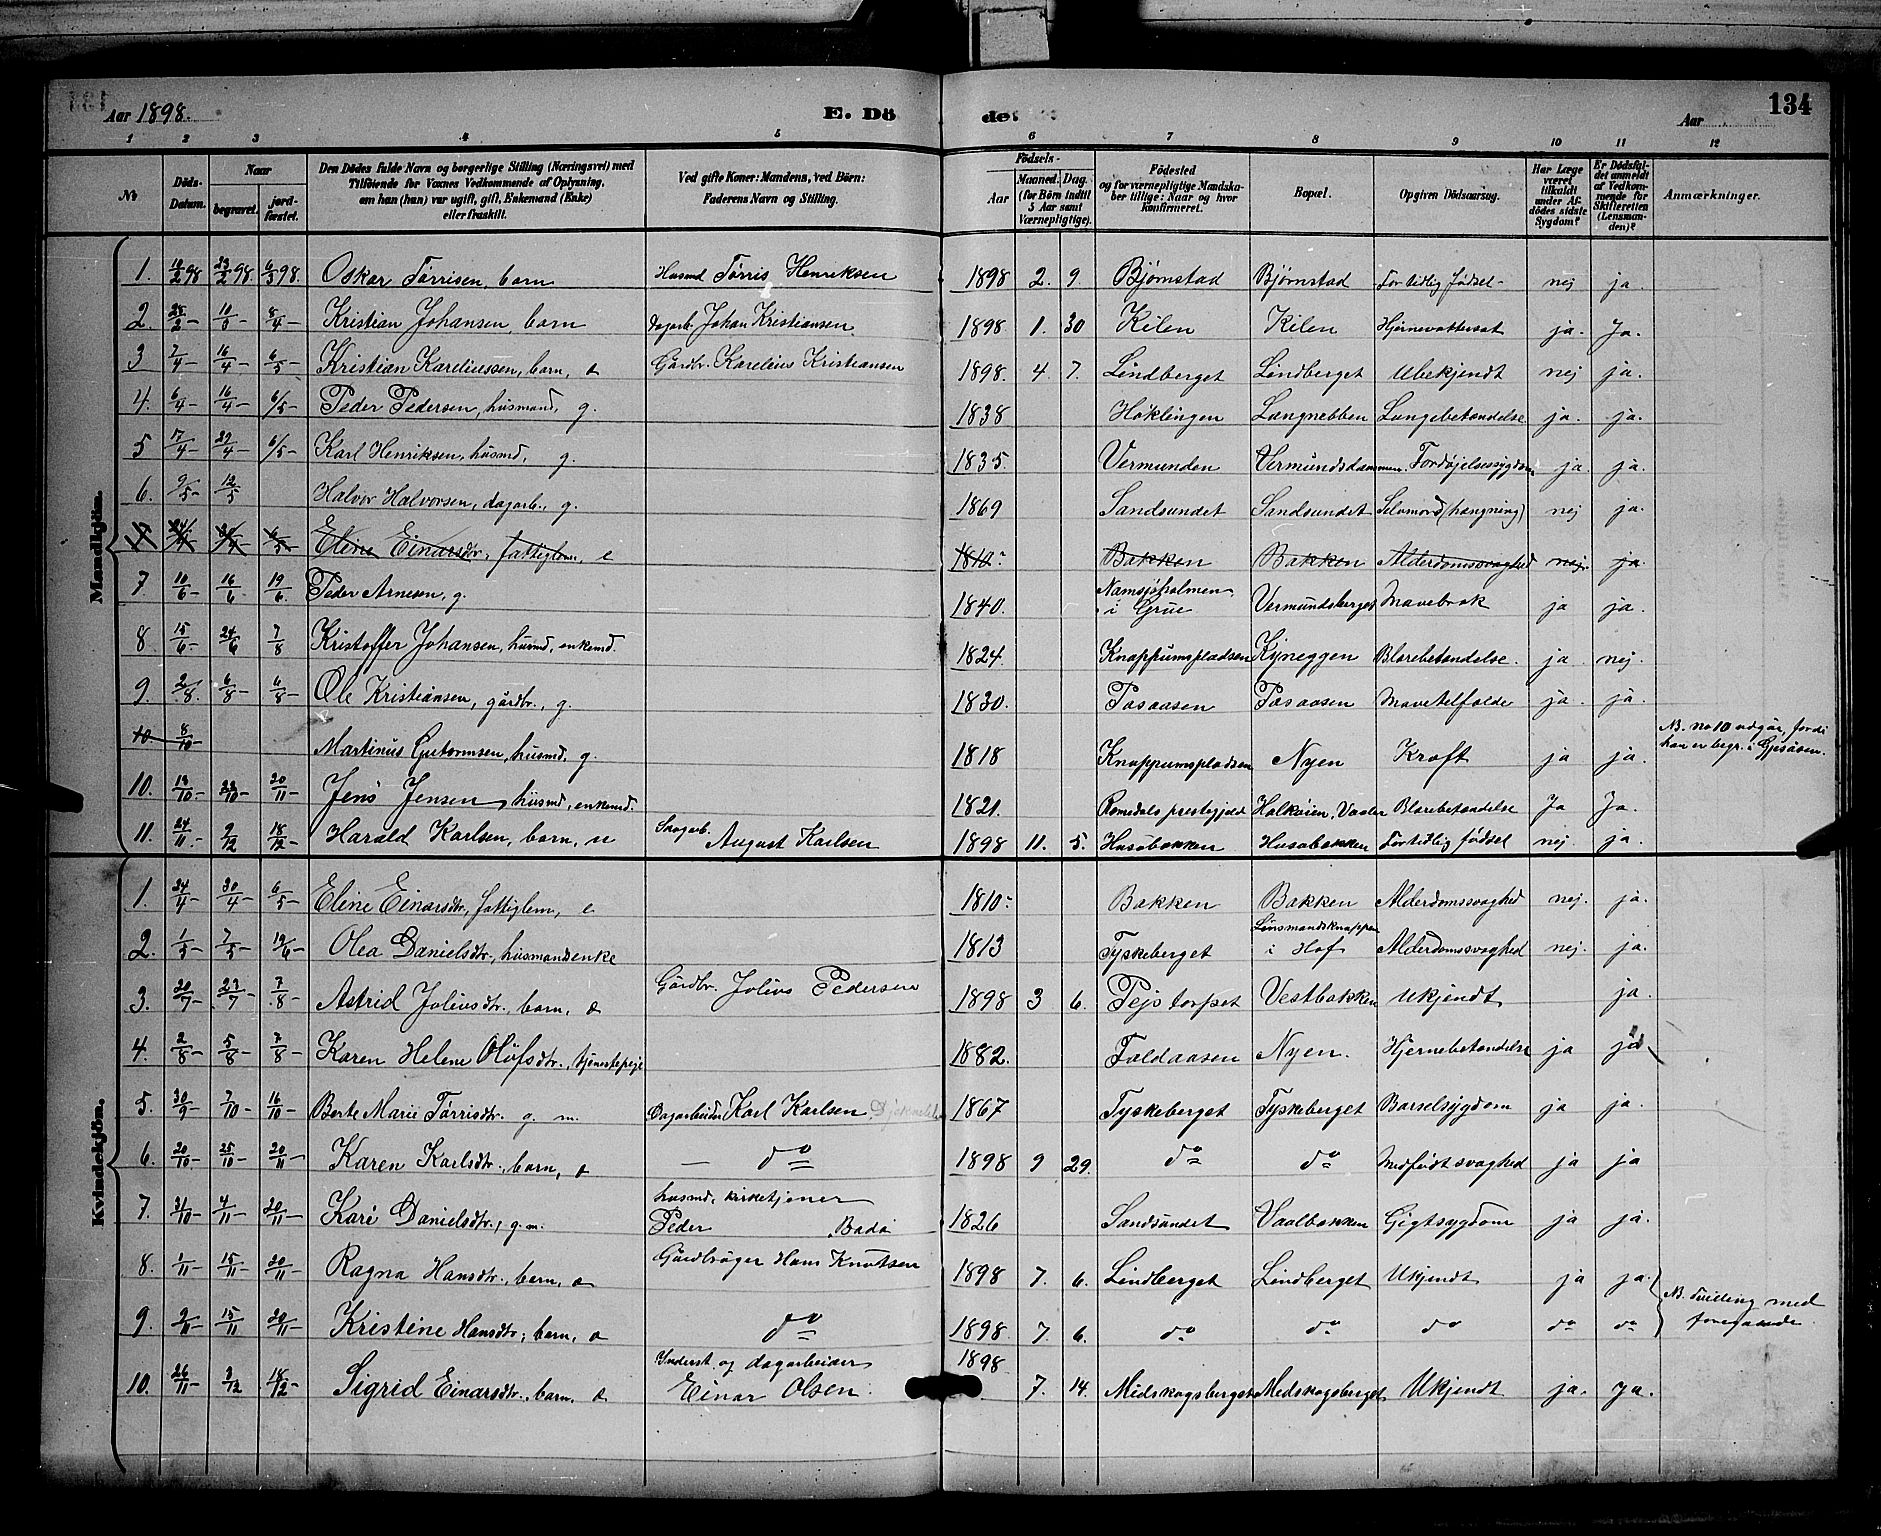 Aar 1898. E. Dö de: Aar 134
1 2 3 4 5 6 7 8 9 10 11 12
No Döds-Datum. Naar begravet. jord-fæstet. Den Dödes fulde Navn og borgerlige Stilling (Næringsvei) med Tilföiende for Voxnes Vedkommende af Oplysning, om han (hun) var ugift, gift, Enkemand (Enke) eller fraskilt. Ved gifte Koner: Mandens, ved Börn: Faderens Navn og Stilling. Födsels- Aar Maaned. Dag. (for Börn indtil 5 Aar samt Værnepligtige). Födested og for værnepligtige Mandska-ber tillige: Naar og hvor konfirmeret. Bopæl. Opgiven Dödsaarsag. Har Læge været tilkaldt under Af-dödes sidste Sygdom? Er Dödsfal-det anmeldt af Vedkom-mende for Skifteretten (Lensman-den)? Anmærkninger.
Mandkjön.
1. 10/2 98 23/2 98 6/3 98. Oskar Tørrisen, barn Husmd Tørris Henriksen 1898 2. 9. Bjørnstad Bjørnstad For tidlig fødsel - nej ja.
2. 28/2 - 10/3 - 8/4 - Kristian Johansen, barn Dagarb. Johan Kristiansen 1898 1. 30 Kilen Kilen Hjernevattersot ja. Ja.
3 7/4 - 16/4 - 6/5 - Kristian Kareliussen, barn, Gårdbr. Karelius Kristiansen 1898. 4. 7. Lindberget Lindberget Ubekjendt nej ja.
4. 6/4 - 16/4 - 6/5 - Peder Pedersen, husmand, g. 1838 Høklingen Langnebben Lungebetændelse ja. ja.
5 17/4 - 27/4 - 6/5 - Karl Henriksen, husmd, g. 1835. Vermunden Fordøjelsessygdom ja. ja.
6. 9/5 - 12/5 Halvor Halvorsen, dagarb., g. 1869 Sandsundet Sandsundet Selvmord (hængning) nej ja.
Eline Einarsdtr, fattiglem, e 1810. Bakken Bakken Alderdomssvaghed nej. ja.
7 10/6 - 16/6 - 19/6. Peder Arnesen, g. 1840. Namsjøholmen i Grue Vermundsberget ja ja.
8. 15/6 - 24/6 7/8 Kristoffer Johansen, husmd, enkemd. 1824. Knappumspladsen Kyneggen Blærebetændelse. ja. nej.
9. 2/8. 6/8 - 6/8 - Ole Kristiansen, gårdbr., g. 1830. Pasaasen Pasaasen ja. ja.
10. 8/10 - Martinus Gutormsen, husmd, g. 1818 Knappumspladsen Nyen Kræft ja ja. NB. no 10 udgår, fordi han er begr. i Gjesåsen.
10. 22/10 - 20/11 - Jens Jensen husmd, enkemd. 1821. Romedals prestegjeld Blærebetændelse Ja Ja.
11. 24/11 - 9/12 18/12 - Harald Karlsen, barn, Skogarb. August Karlsen 1898 11. 5. Husobakken Husobakken For tidlig fødsel nej. ja.
Kvindekjön.
1. 24/4 - 30/4 - 6/5 - Eline Einarsdtr, fattiglem, e 1810. Bakken Bakken Alderdomssvaghed nej. ja.
2. 1/5 - 7/5 - 19/6 - Olea Danielsdtr., husmandsenke 1813 Tyskeberget Linsmandsknappen i Hof Alderdomssvaghed nej. ja.
3. 20/7 - 27/7 7/8 - Astrid Juliusdtr. barn, Gårdbr. Julius Pedersen 1898 3 6. Pejstorpet Vestbakken Ukjendt ja.
4. 2/8 - 5/8 - 7/8 - Karen Helene Olufsdtr., tjenestepige 1882. Faldaasen Nyen. Hjernebetændelse ja ja
5. 30/9 - 7/10 - 16/10 - Berte Marie Tørrisdtr. g. m. Dagarbeider Karl Karlsen 1867 Tyskeberget Tyskeberget Barselsygdom ja ja.
6. 20/10 - 25/10 - 20/11 - Karen Karlsdtr., barn, — do 1898 9 29. do do Medfødt svaghed ja ja
7. 31/10 - 4/11 - 20/11 - Kari Danielsdtr., g. m. husmd, kirketjener Peder Bada 1826 Sandsundet Vaalbakken Gigtsygdom ja ja.
8. 1/11 - 15/11 - 20/11 - Ragna Hansdtr., barn, Gårdbruger Hans Knutsen 1898 7. 6. Lindberget Lindberget Ukjendt ja ja.
9. 9/11 - 15/11 20/11 - Kristine Hansdtr., barn, do 1898. 7. 6. do do do do do NB. tvilling med foregaaende.
10. 26/11 - 3/12 18/12 - Sigrid Einarsdtr., barn, Inderst. og dagarbeider Einar Olsen. 1898 7. 14. Midskogsberget Midskogsberget Ukjendt ja. Ja.